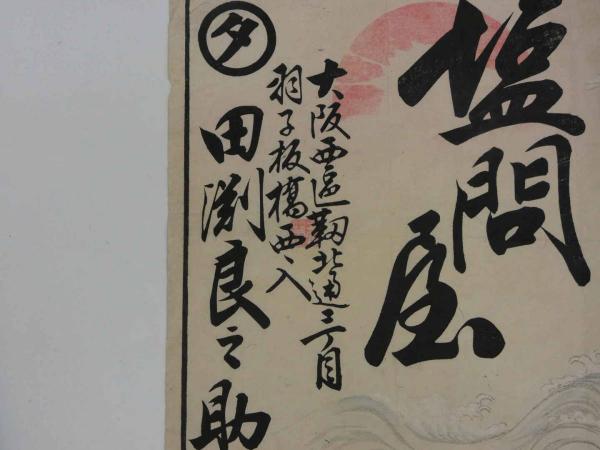 塩問屋
大阪西區靱北通三丁目
羽子板橋西入
タ
田渕良之助